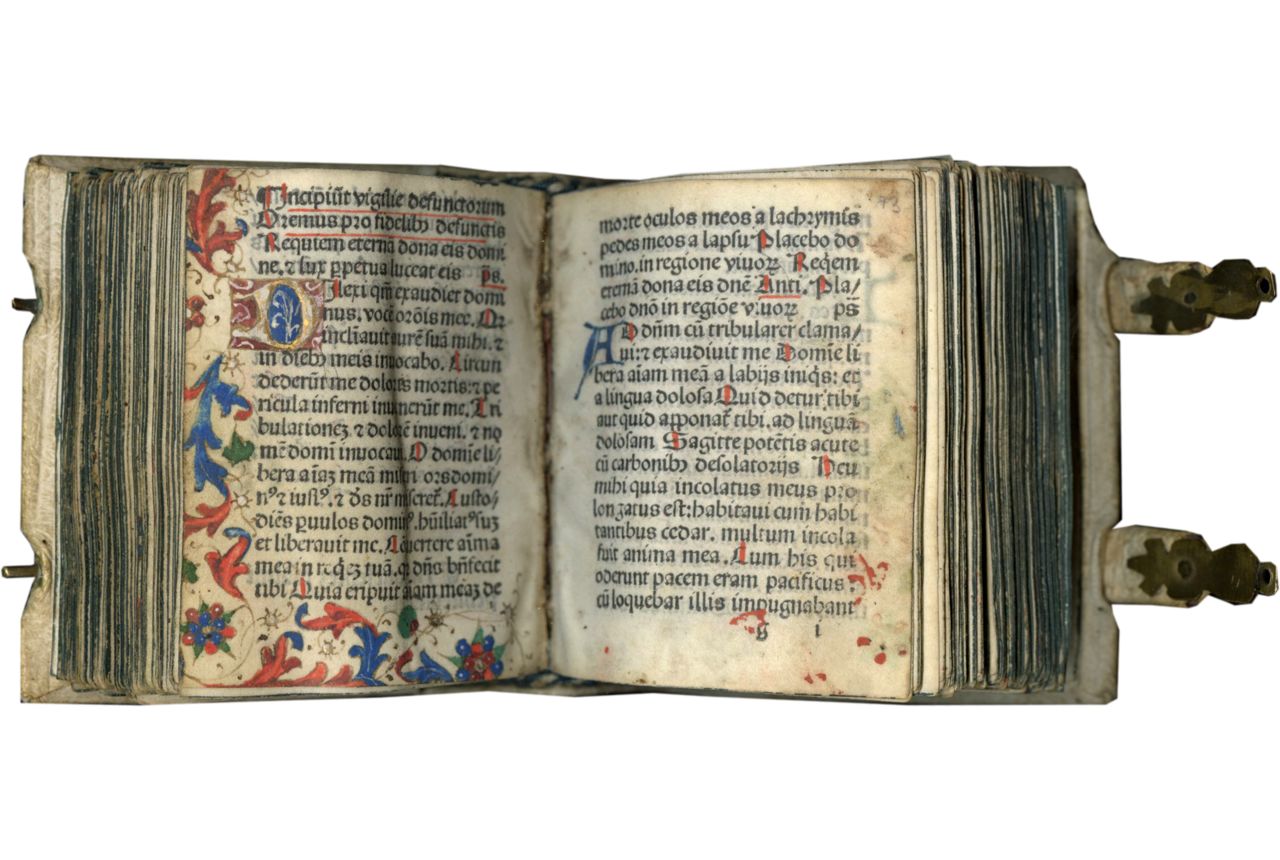 Incipiūt vigilie defunctorum
Oremus pro fidelibꝫ defunctis
Requiem eternā dona eis domi
ne. ⁊ lux ꝑpetua luceat eis ps̄.
Dilexi qm̄ exaudiet domi
nus. vocē orōis mee. Qr
inclīauit aurē suā mihi. ⁊
in diebꝫ meis inuocabo. Circun
dederūt me dolores mortis: ⁊ pe
ricula inferni inuenerūt me. Tri
bulationeꝫ ⁊ dolorē inueni. ⁊ no
mē domi inuocaui. O domie li/
bera aīaꝫ meā mihi ors domi/
nꝰ ⁊ iustꝰ. ⁊ dꝰs nr̄ miseret̄. Custo/
diēs ꝑuulos domiꝰ. hūiliatꝰ suꝫ
et liberauit me. Cōuertere aīma
mea in reqēꝫ tuā. q dn̄s bn̄fecit
tibi Quia eripuit aīam meaꝫ de
morte oculos meos a lachrymis
pedes meos a lapsu Placebo do
mino. in regione viuoꝝ Reqēm
eternā dona eis dnē Anti. Pla/
cebo dnō in regiōe viuoꝝ ps̄
AD dn̄m cū tribularer clama/
ui: ⁊ exaudiuit me Domīe li
bera aīam meā a labijs iniq̄s: et
a lingua dolosa Quid detur tibi
aut quid apponat̄ tibi. ad linguā
dolosam Sagitte potētis acute
cū carbonibꝫ desolatorijs Heu
mihi quia incolatus meus pro
longatus est: habitaui cum habi
tantibus cedar. multum incola
fuit anima mea. Cum his qui
oderunt pacem eram pacificus:
cū loquebar illis impugnabant
g i